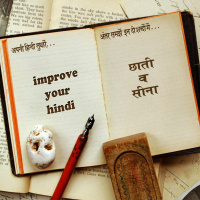 अपनी हिन्दी सुधारें...
improve
your
hindi
अंतर समझें इन दो शब्दों में...
छाती
व
सीना